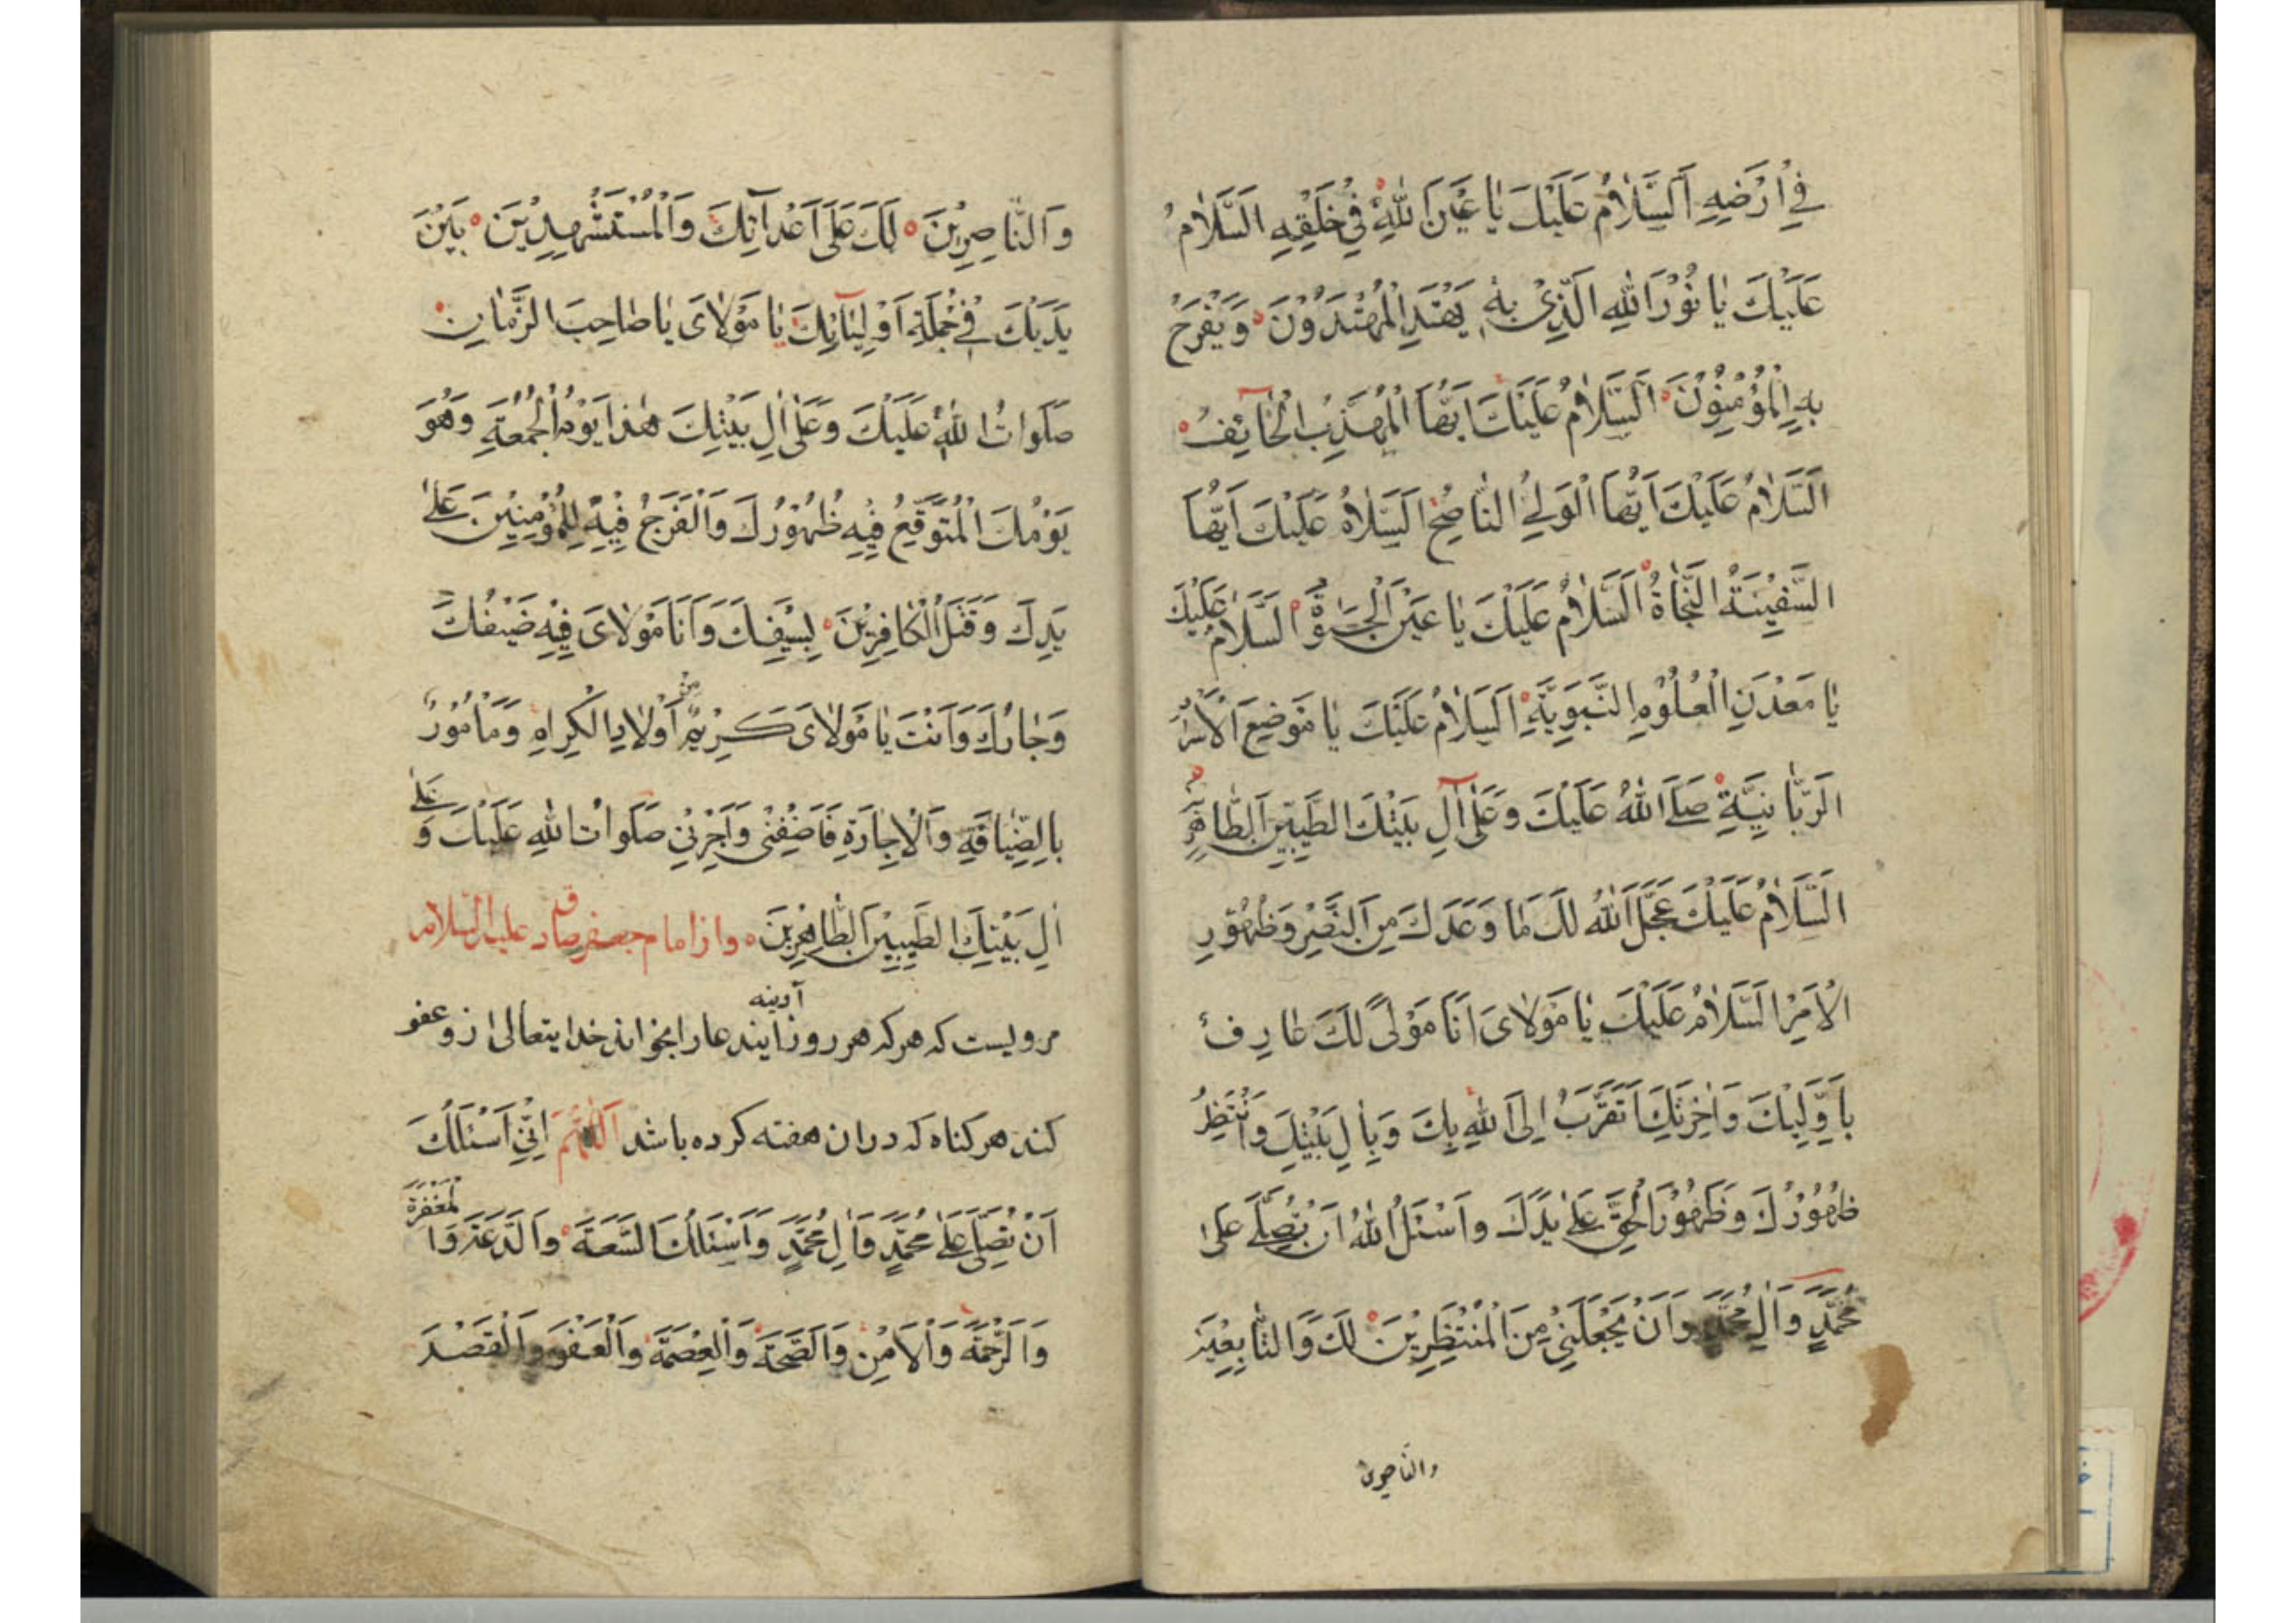 فِي اَرْضِهِ اَلسَّلَامُ عَلَيْكَ يَا عَيْنَ اللهِ فِي خَلْقِهِ السَّلَامُ
عَلَيْكَ يَا نُوْرَ اللهِ الَّذِيْ بِهِ يَهْتَدِ الْمُهْتَدُوْنَ وَيُفْرَجُ
بِهِ الْمُؤْمِنُوْنَ اَلسَّلَامُ عَلَيْكَ اَيُّهَا الْمُهَذَّبُ الْخَآئِفُ
اَلسَّلَامُ عَلَيْكَ اَيُّهَا الْوَلِيُّ النَّاصِحُ اَلسَّلَامُ عَلَيْكَ اَيُّهَا
السَّفِيْنَةُ النَّجَاةُ اَلسَّلَامُ عَلَيْكَ يَا عَيْنَ الْحَيٰوةِ اَلسَّلَامُ عَلَيْكَ
يَا مَعْدَنِ الْعُلُوْمِ النَّبَوِيَّةِ اَلسَّلَامُ عَلَيْكَ يَا مَوْضِعَ الْاَسْرَارِ
الرَّبَّانِيَّةِ صَلَّى اللهُ عَلَيْكَ وَعَلٰى آلِ بَيْتِكَ الطَّيِّبِيْنَ الطَّاهِرِيْنَ
السَّلَامُ عَلَيْكَ عَجَّلَ اللهُ لَكَ مَا وَعَدَكَ مِنَ النَّصْرِ وَظُهُوْرِ
الْاَمْرِ السَّلَامُ عَلَيْكَ يَا مَوْلَايَ اَنَا مَوْلًى لَكَ عَارِفٌ
بِاَوَّلِيْكَ وَاٰخِرِتِكَ اَتَقَرَّبُ اِلَى اللهِ بِكَ وَبِاٰلِ بَيْتِكَ وَاَنْتَظِرُ
ظُهُوْرُكَ وَظُهُوْرَ الْحَقِّ عَلٰى يَدِكَ وَاَسْئَلُ اللهَ اَنْ يُصَلِّيَ عَلٰى
مُحَمَّدٍ وَاٰلِ مُحَمَّدٍ وَاَنْ يَجْعَلَنِيْ مِنَ الْمُنْتَظِرِيْنَ لَكَ وَالتَّابِعِيْنَ
والناصرين
وَالنَّاصِرِيْنَ لَكَ عَلٰى اَعْدَآئِكَ وَالْمُسْتَشْهِدِيْنَ بَيْنَ
يَدَيْكَ فِيْ جُمْلَةِ اَوْلِيَآئِكَ يَا مَوْلَايَ يَا صَاحِبَ الزَّمَانِ
صَلَوَاتُ اللهِ عَلَيْكَ وَعَلٰى اٰلِ بَيْتِكَ هٰذَا يَوْمُ الْجُمُعَةِ وَهُوَ
يَوْمُكَ الْمُتَوَقَّعُ فِيْهِ ظُهُوْرُكَ وَالْفَرَجُ فِيْهِ لِلْمُؤْمِنِيْنَ عَلٰى
يَدِكَ وَقَتْلُ الْكَافِرِيْنَ بِسَيْفِكَ وَاَنَا مَوْلَايَ فِيْهِ ضَيْفُكَ
وَجَارُكَ وَاَنْتَ يَا مَوْلَايَ كَرِيْمٌ مِنْ اَوْلَادِ الْكِرَامِ وَمَأْمُوْرٌ
بِالضِّيَافَةِ وَالْاِجَارَةِ فَاَضِفْنِيْ وَاَجِرْنِيْ صَلَوَاتُ اللهِ عَلَيْكَ وَ عَلٰى
اٰلِ بَيْتِكَ الطَّيِّبِيْنَ الطَّاهِرِيْنَ واز امام جعفر صادق عليه السلام
مرویست که هر که هر روز آدینه ایندعا را بخواند خدایتعالی ازو عفو
کند هر کناه که دران هفته کرده باشد اَللّٰهُمَّ اِنِّيْ اَسْئَلُكَ
اَنْ تُصَلِّيَ عَلٰى مُحَمَّدٍ وَاٰلِ مُحَمَّدٍ وَاَسْئَلُكَ السَّعَةَ وَالدَّعَةَ وَالْمَغْفِرَةَ
وَالرَّحْمَةَ وَالْاَمْنِ وَالصِّحَّةَ وَالْعِصْمَةَ وَالْعَفْوَ وَالْقَصْدَ